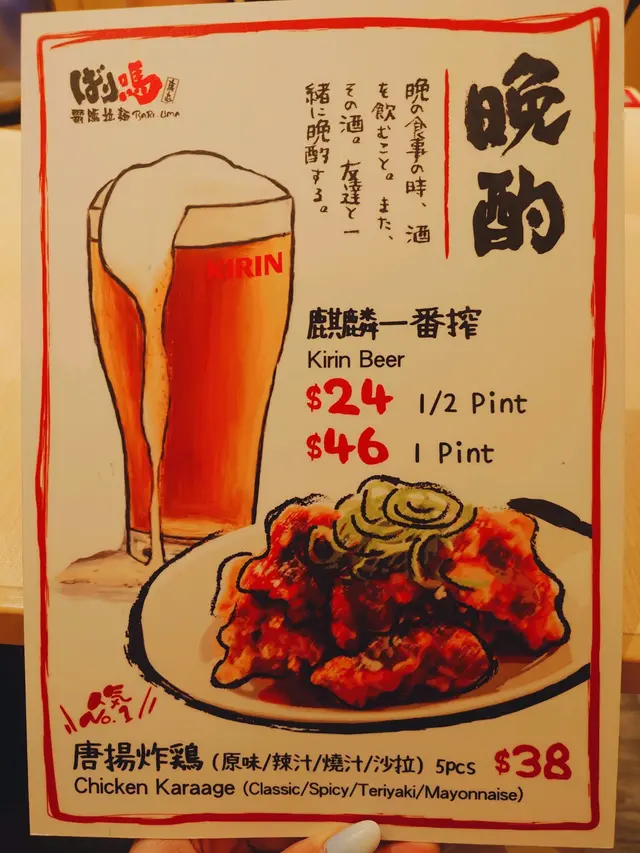 ばり嗎
醤豚拉麺 BARI-UMA
晩酌
晩の食事の時、酒
を飲むこと。また、
その酒。友達と一
緒に晩酌する。
KIRIN
麒麟一番搾
Kirin Beer
$24 1/2 Pint
$46 1 Pint
人気
No.1
唐揚炸鶏 (原味/辣汁/燒汁/沙拉) 5pcs $38
Chicken Karaage (Classic/Spicy/Teriyaki/Mayonnaise)